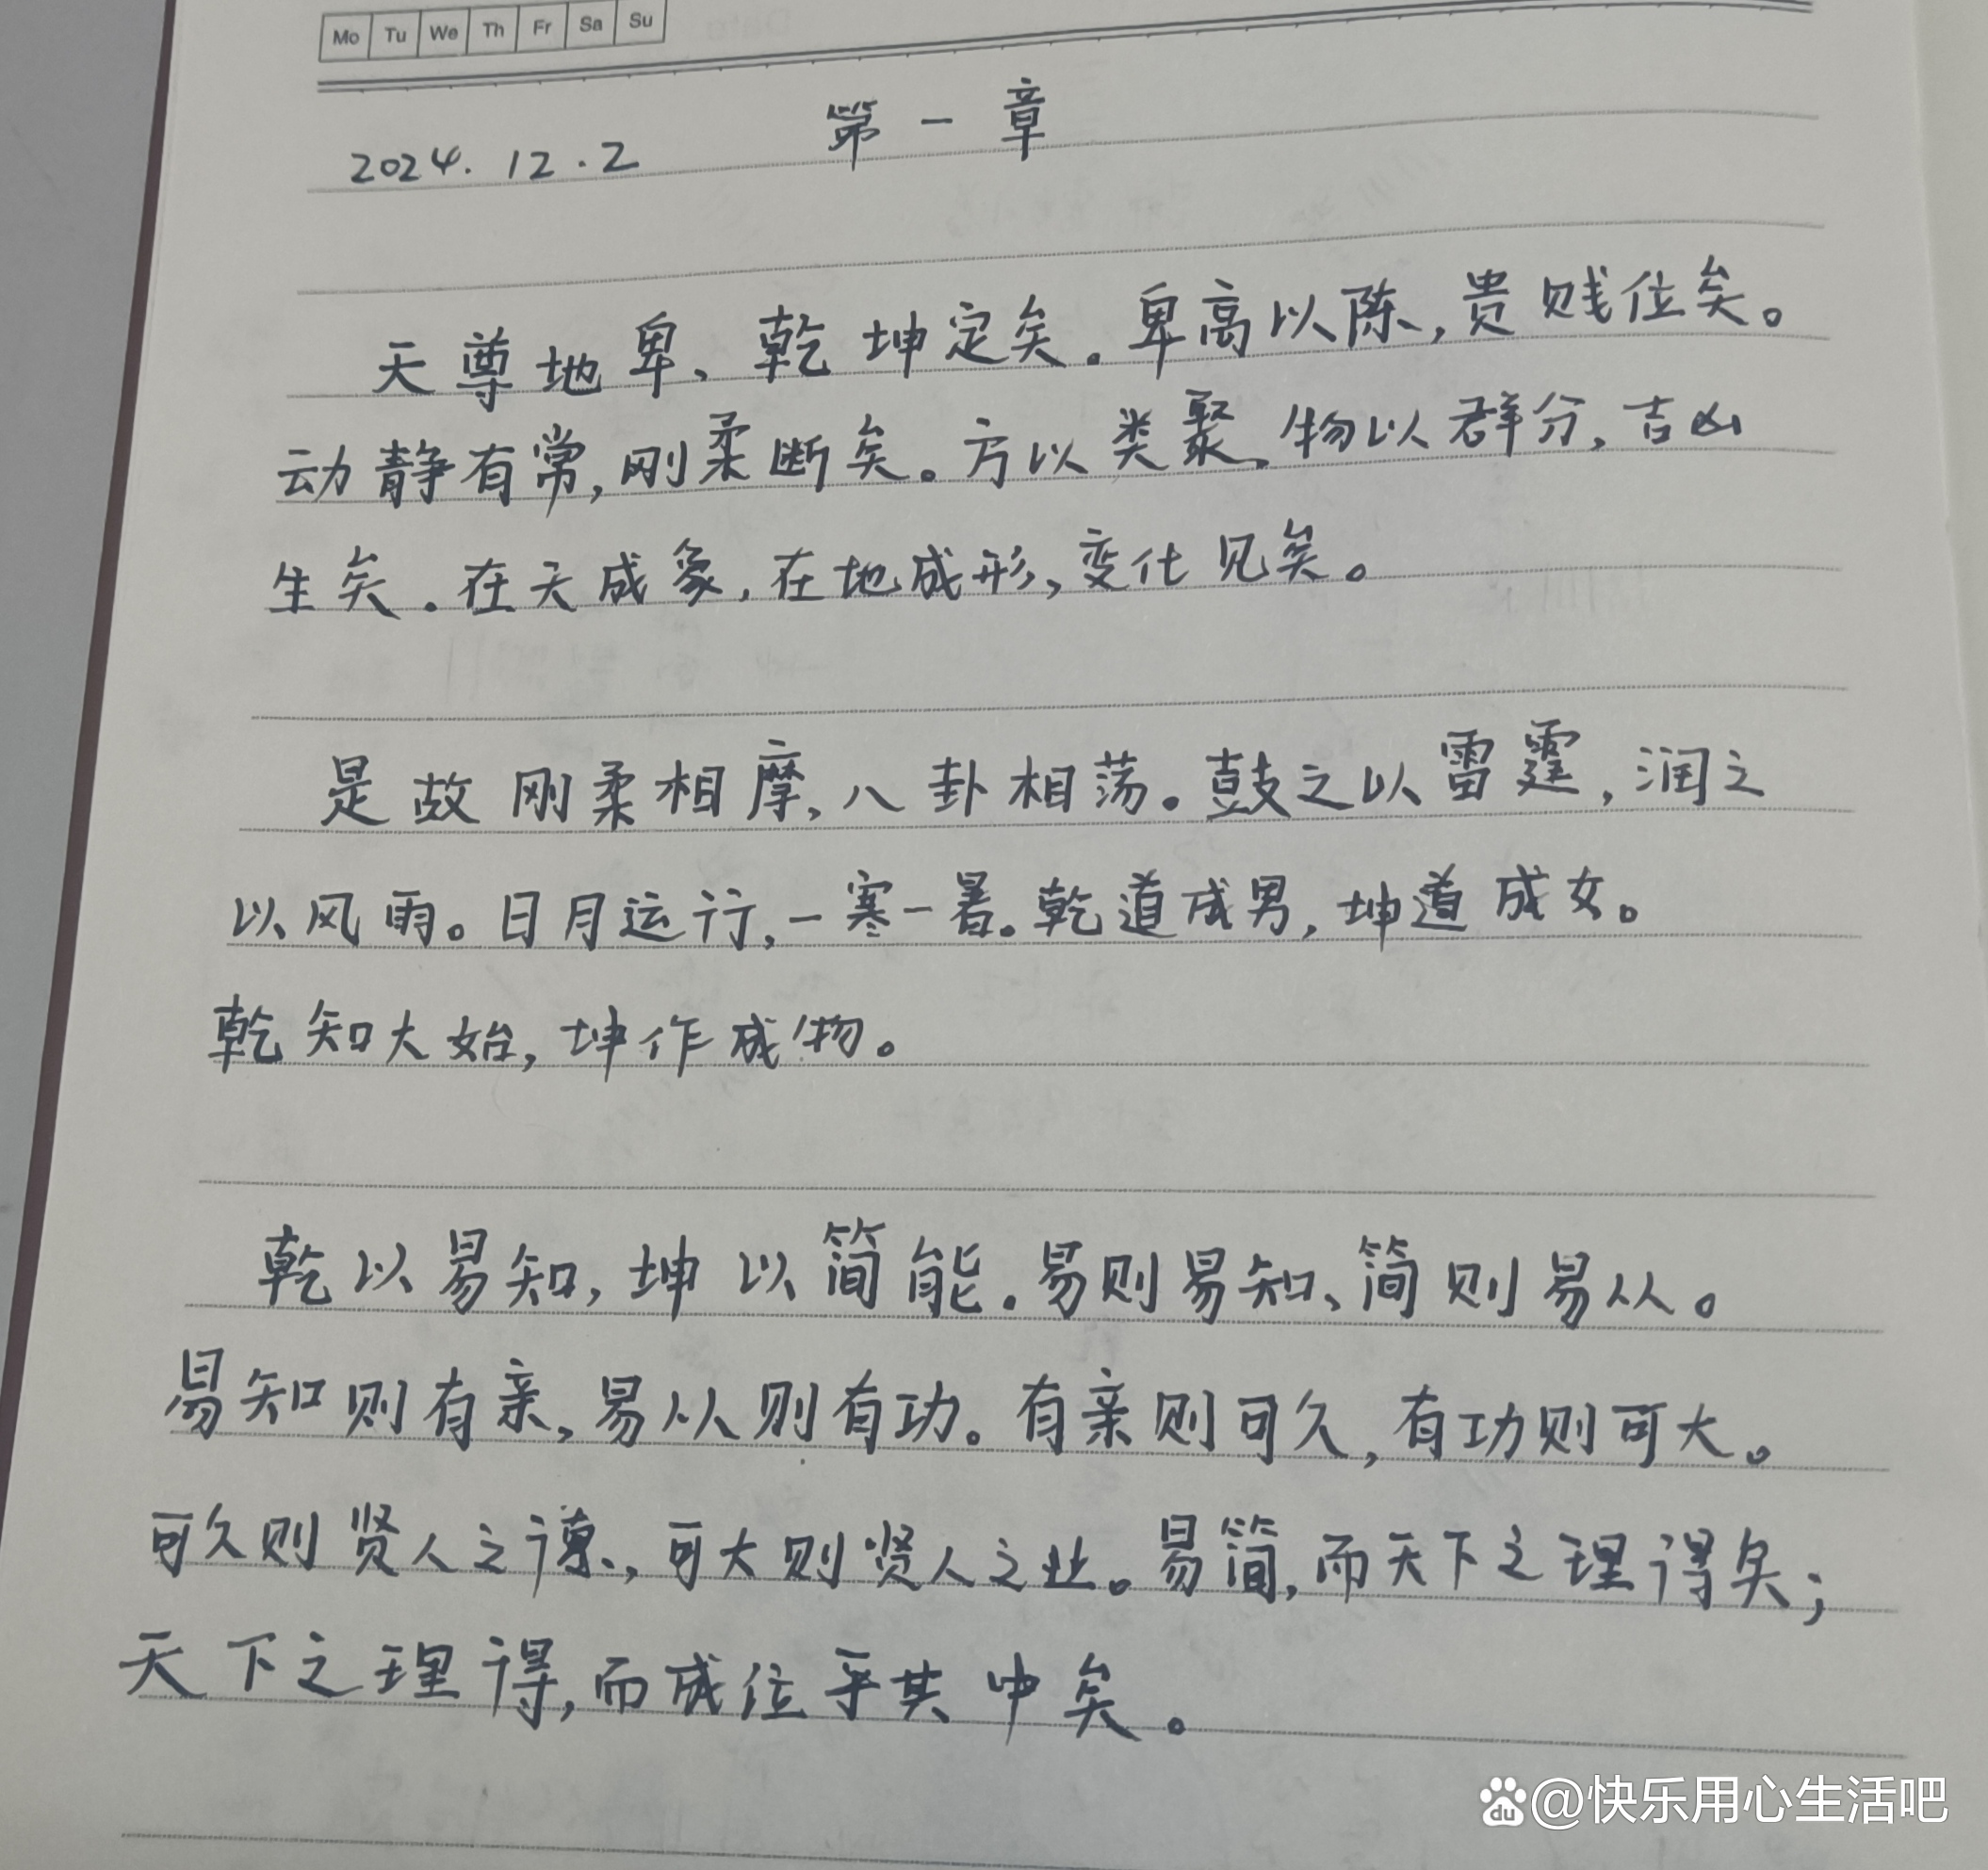 Mo Tu We Th Fr Sa Su
2024.12.2 第一章
天尊地卑、乾坤定矣.卑高以陈,贵贱位矣。
动静有常,刚柔断矣。方以类聚,物以群分,吉凶
生矣.在天成象,在地成形,变化见矣。
是故刚柔相摩,八卦相荡。鼓之以雷霆,润之
以风雨。日月运行,一寒一暑。乾道成男,坤道成女。
乾知大始,坤作成物。
乾以易知,坤以简能.易则易知、简则易从。
易知则有亲,易从则有功。有亲则可久,有功则可大。
可久则贤人之德,可大则贤人之业。易简,而天下之理得矣;
天下之理得,而成位乎其中矣。
du @快乐用心生活吧